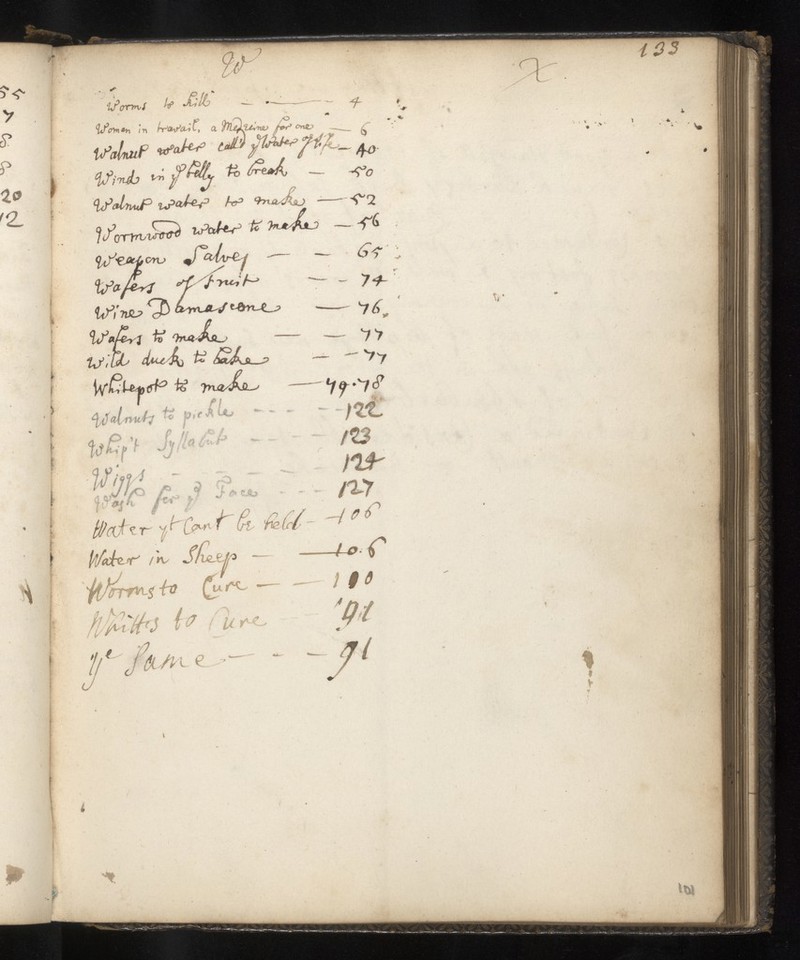 133
W
X.
Worms to kill - 4
Woman in travail, a Medizine for one - 6
Walnut water call'd yͤ water of life - 40
Wind in yͤ belly to break - 50
Walnut water to make - 52
Wormwood water to make - 56
Weapon Salve - - 65
Wafers of Fruit - - 74
Wine Damascene - 76.
Wafers to make - - 77
Wild duck to bake - - 77
Whitepot to make - 79.78
Walnuts to pickle - - - - - 122
Whip't Syllabub - - - - 123
Wiggs - - - - 124
Wash for yͤ Face - - - 127
Water yͭ Cant be held - 106
Water in Sheep - - 106
Worms to Cure - - 100
Whittss to Cure - - 91
Yͤ Same - - - 91
55
7
8
8
20
12
101